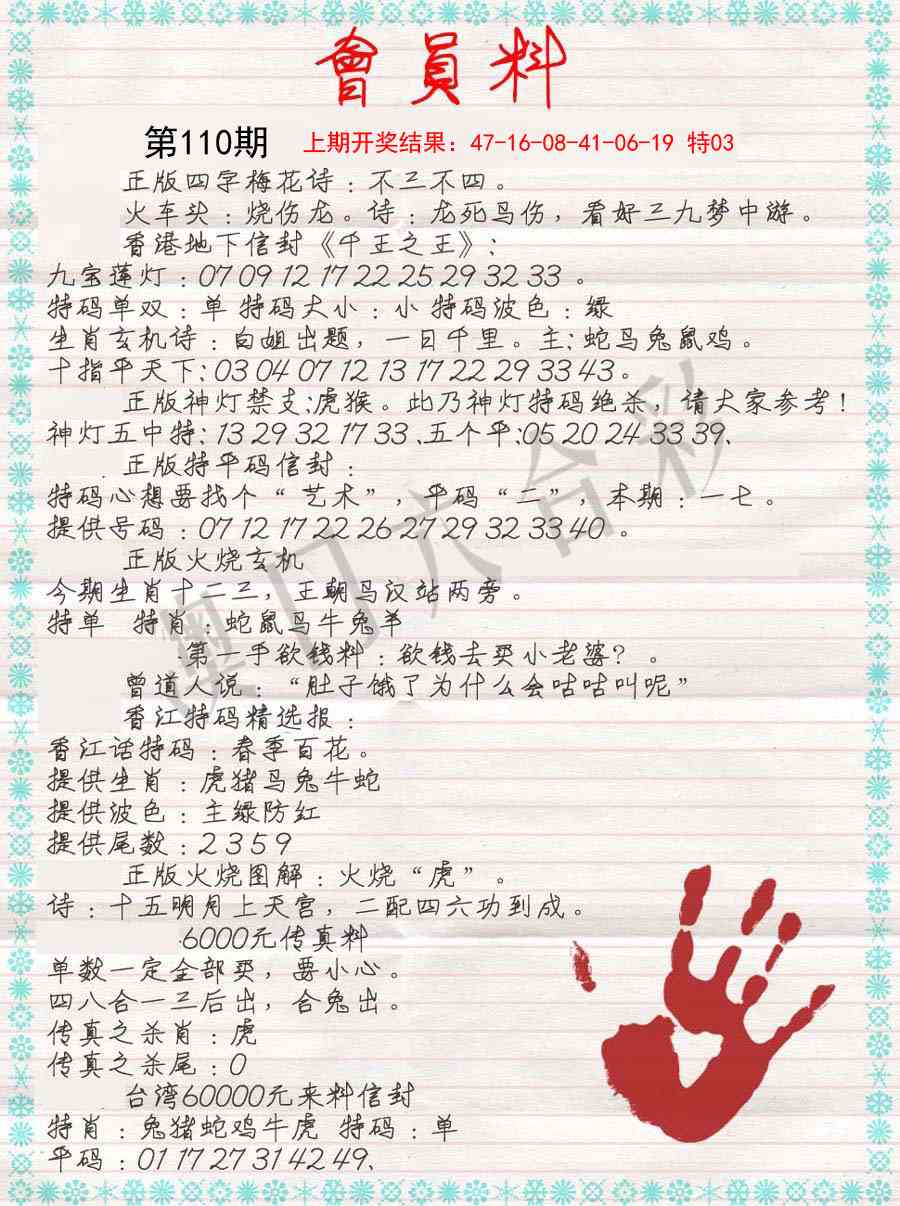 會員料
第110期 上期开奖结果：47-16-08-41-06-19 特03
正版四字梅花诗：不三不四。
火车头：烧伤龙。诗：龙死鸟伤，看好三九梦中游。
香港地下信封《千王之王》：
九宝莲灯：07 09 12 17 22 25 29 32 33 。
特码单双：单 特码大小：小 特码波色：绿
生肖玄机诗：白姐出题，一日千里。主：蛇马兔鼠鸡。
十指平天下：03 04 07 12 13 17 22 29 33 43。
正版神灯禁支：虎猴。此乃神灯特码绝杀，请大家参考！
神灯五中特：13 29 32 17 33、五个平：05 20 24 33 39、
正版特平码信封：
特码心想要找个“艺术”，平码“二”，本期：一七。
提供号码：07 12 17 22 26 27 29 32 33 40 。
正版火烧玄机
今期生肖十二三，王朝马汉站两旁。
特单 特肖：蛇鼠马牛兔羊
第一手欲钱料：欲钱去买小老婆？。
曾道人说：“肚子饿了为什么会咕咕叫呢”
香江特码精选报：
香江话特码：春季百花。
提供生肖：虎猪马兔牛蛇
提供波色：主绿防红
提供尾数：2 3 5 9
正版火烧图解：火烧“虎”。
诗：十五明月上天宫，二配四六功到成。
6000元传真料
单数一定全部买，要小心。
四八合一三后出，合兔出。
传真之杀肖：虎
传真之杀尾：0
台湾60000元来料信封
特肖：兔猪蛇鸡牛虎 特码：单
平码：01 17 27 31 42 49、
澳门六合彩